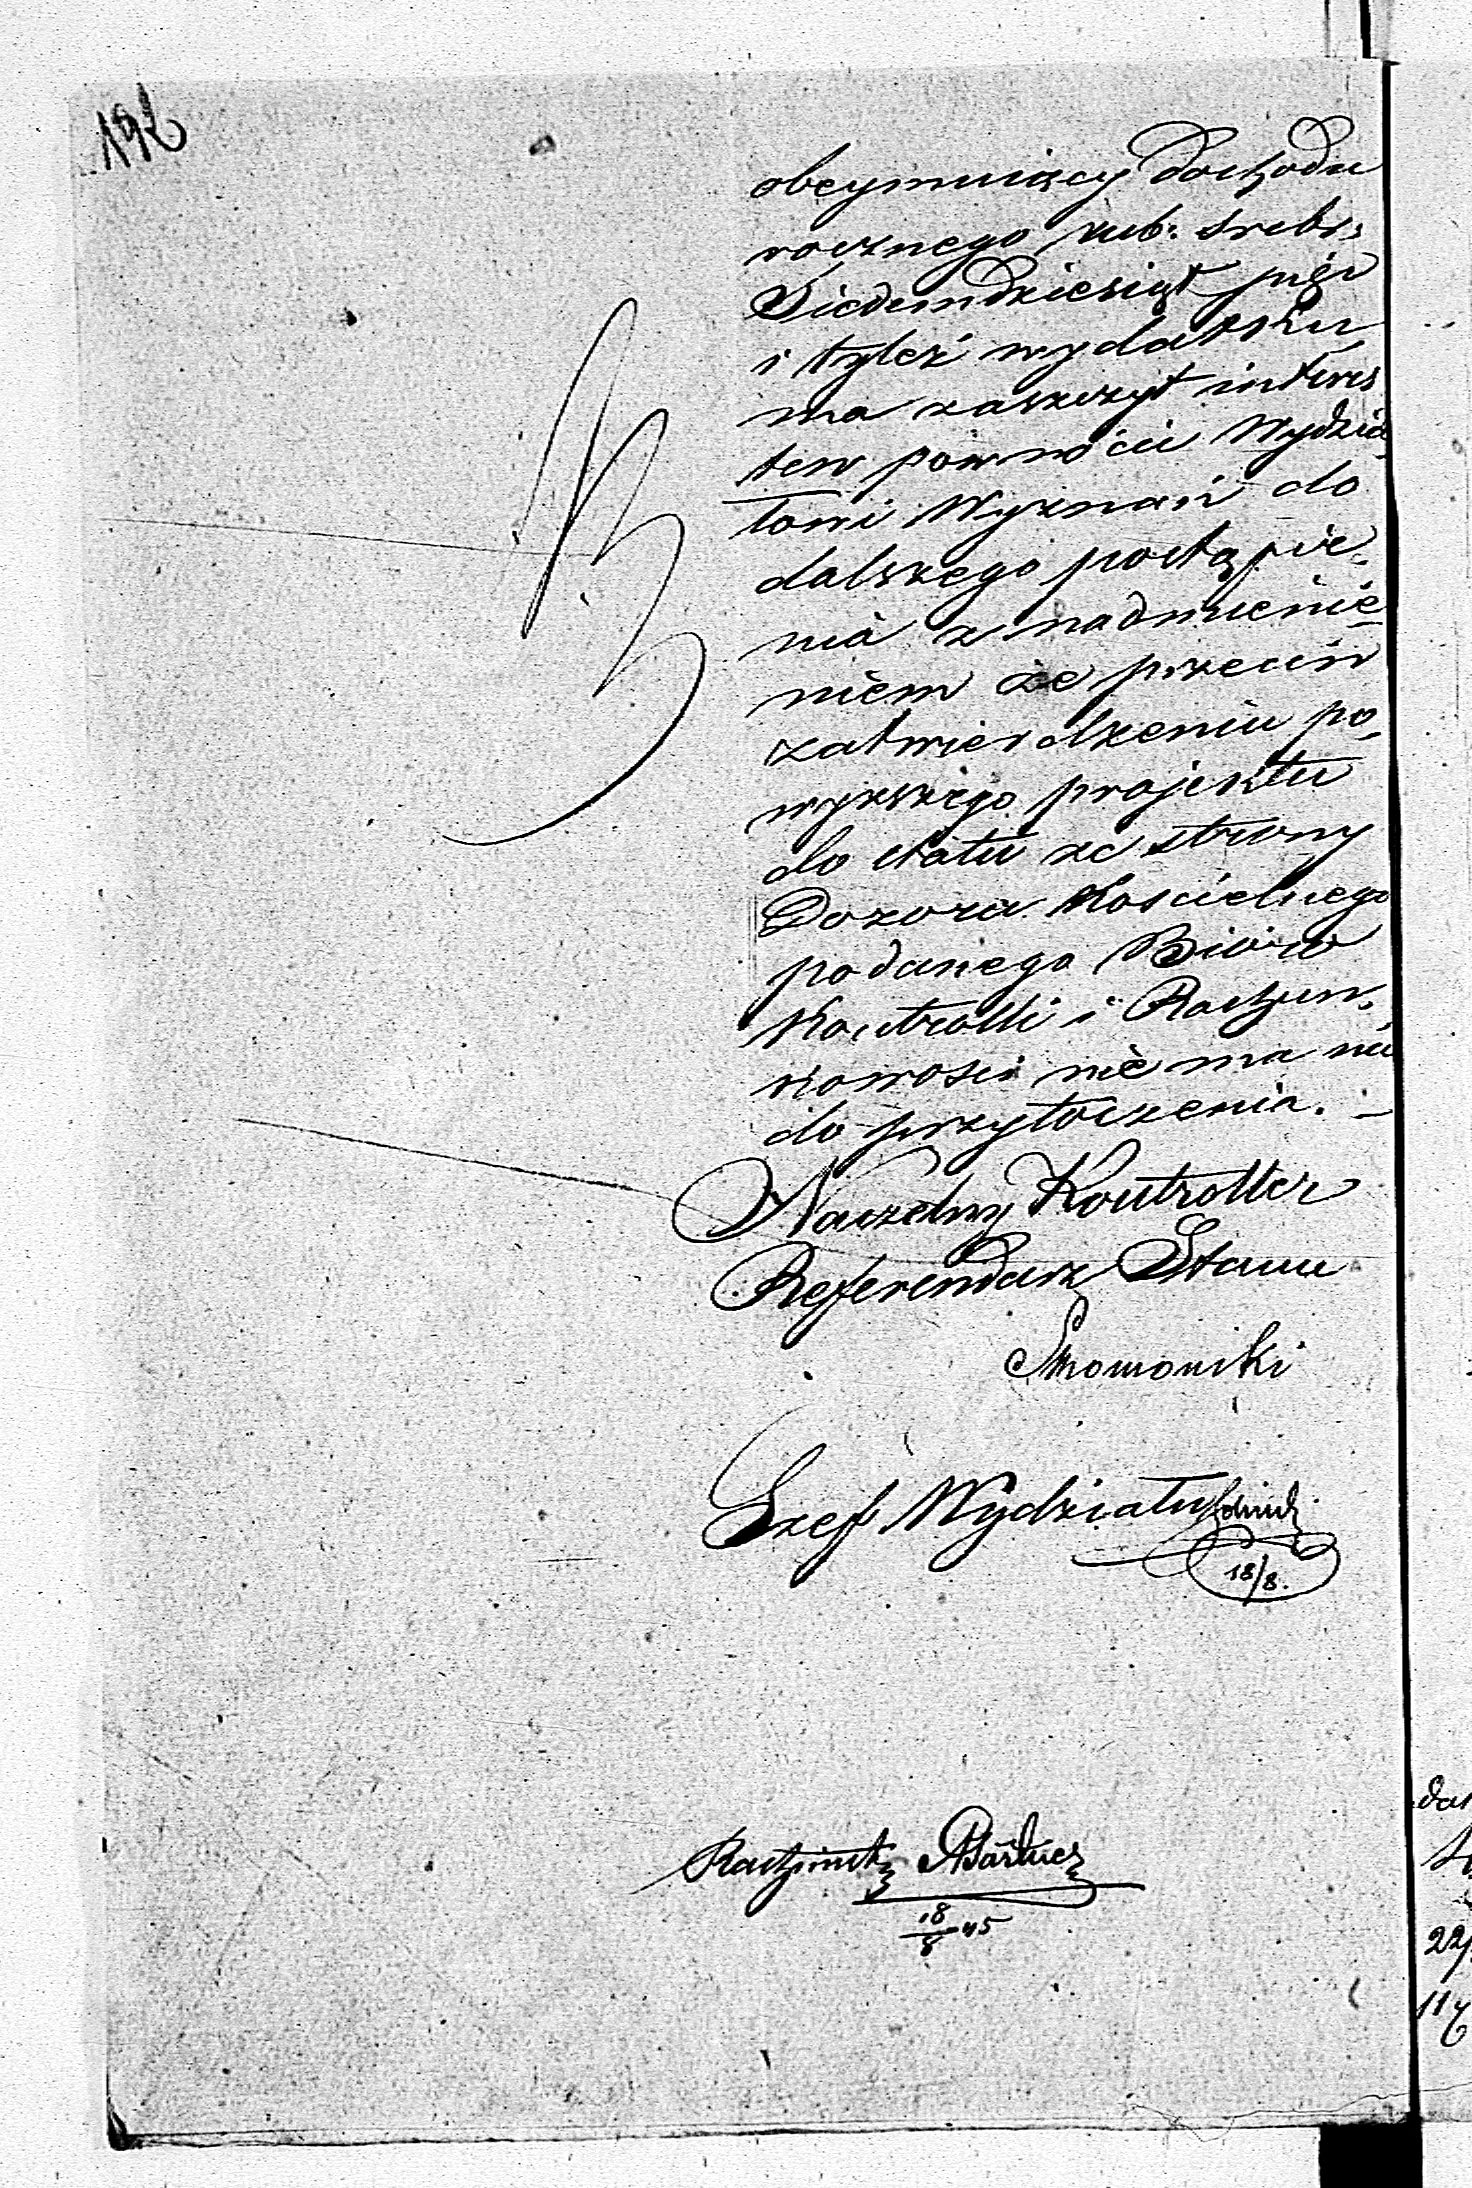 192
obeymuiący dochodu
rocznego rub: srebr:
Siedemdziesiąt pięć
i tyleż wydatku
ma zaszczyt interes
ten powrócić Wydzia
łowi Wyznań do
dalszego postąpie-
nia z nadmienie-
niem że przeciw
zatwierdzeniu po-
wyższego projektu
do etatu ze strony
Dozoru Kościelnego
podanego Biuro
Kontrolli i Rachun-
kowości nie ma nic
do przytoczenia. —
Naczelny Kontroller
Referendarz Stanu
Szef Wydziału
18/8.
18/8 45